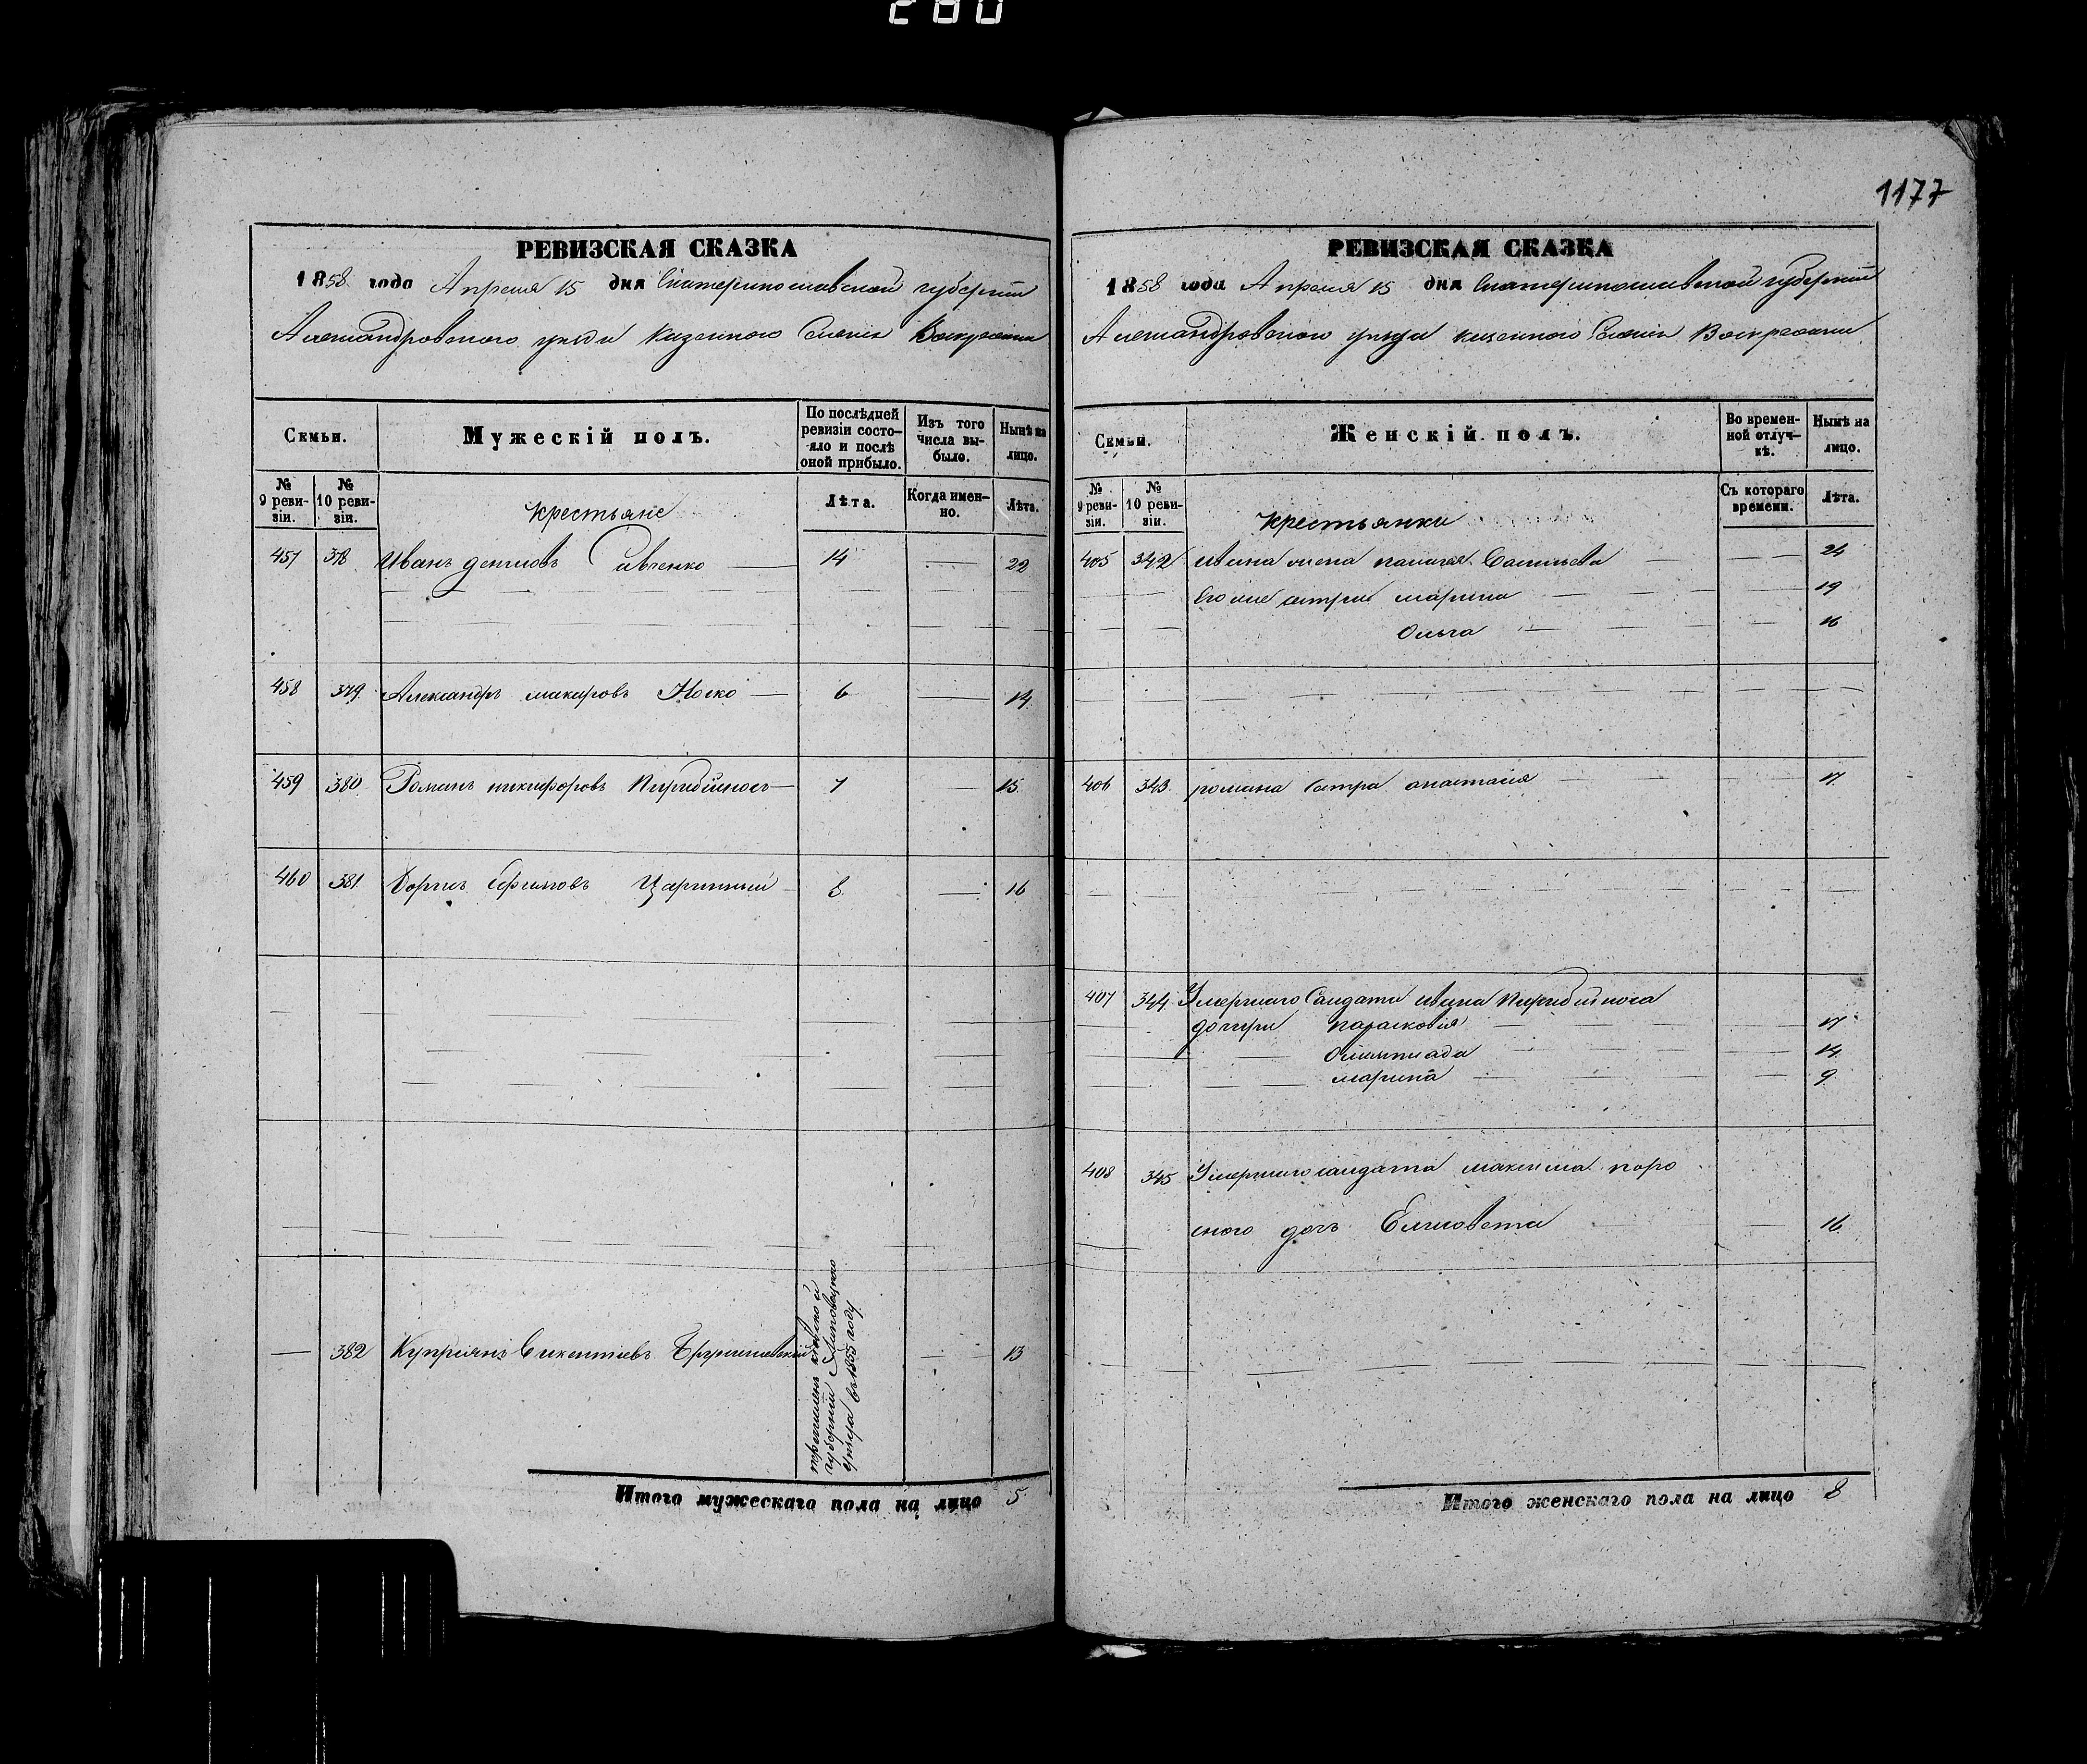 280
РЕВИЗСКАЯ СКАЗКА
1858 года Апреля 15 дня Екатеринославской губернии
Александровского уезда казенного Селения Воскресенки
Семьи.
Мужескій полъ.
По послѣдней ревизіи состояло и послѣ оной прибыло.
Изъ того числа выбыло.
Нынѣ на лицо.
№ 9 ревизіи.
№ 10 ревизіи.
Крестьяне
Лѣта.
Когда именно.
Лѣта.
457 378 Иванъ денисовъ Савченко — 14 — 22
458 379 Александръ макаровъ Носко — 6 — 14
459 380 Романъ никифоровъ — 7 — 15
460 381 Борисъ Ефимовъ Царинный 8 — 16
— 382 Купріянъ Викентіевъ — 13
перечисленъ киевской
губернии Липовецкого
уезда въ 1855 году
Итого мужескаго пола на лицо 5
1177
РЕВИЗСКАЯ СКАЗКА
1858 года Апреля 15 дня Екатеринославской губернии
Александровского уезда казенного Селения Воскресенки
Семьи.
Женскій полъ.
Во временной отлучкѣ.
Нынѣ на лицо.
№ 9 ревизіи.
№ 10 ревизіи.
Крестьянки
Съ котораго времени.
Лѣта.
405 342 ивана жена палагея — 24
Его же сестры марина — 19
Ольга — 16
406 343 романа сестра анастасия — 17
407 344 Умершаго Солдата ивана
дочери парасковия — 17
Олимпиада — 14
марина — 9
408 345 Умершаго солдата максима поро
сного дочь Елисовета 16
Итого женскаго пола на лицо 8